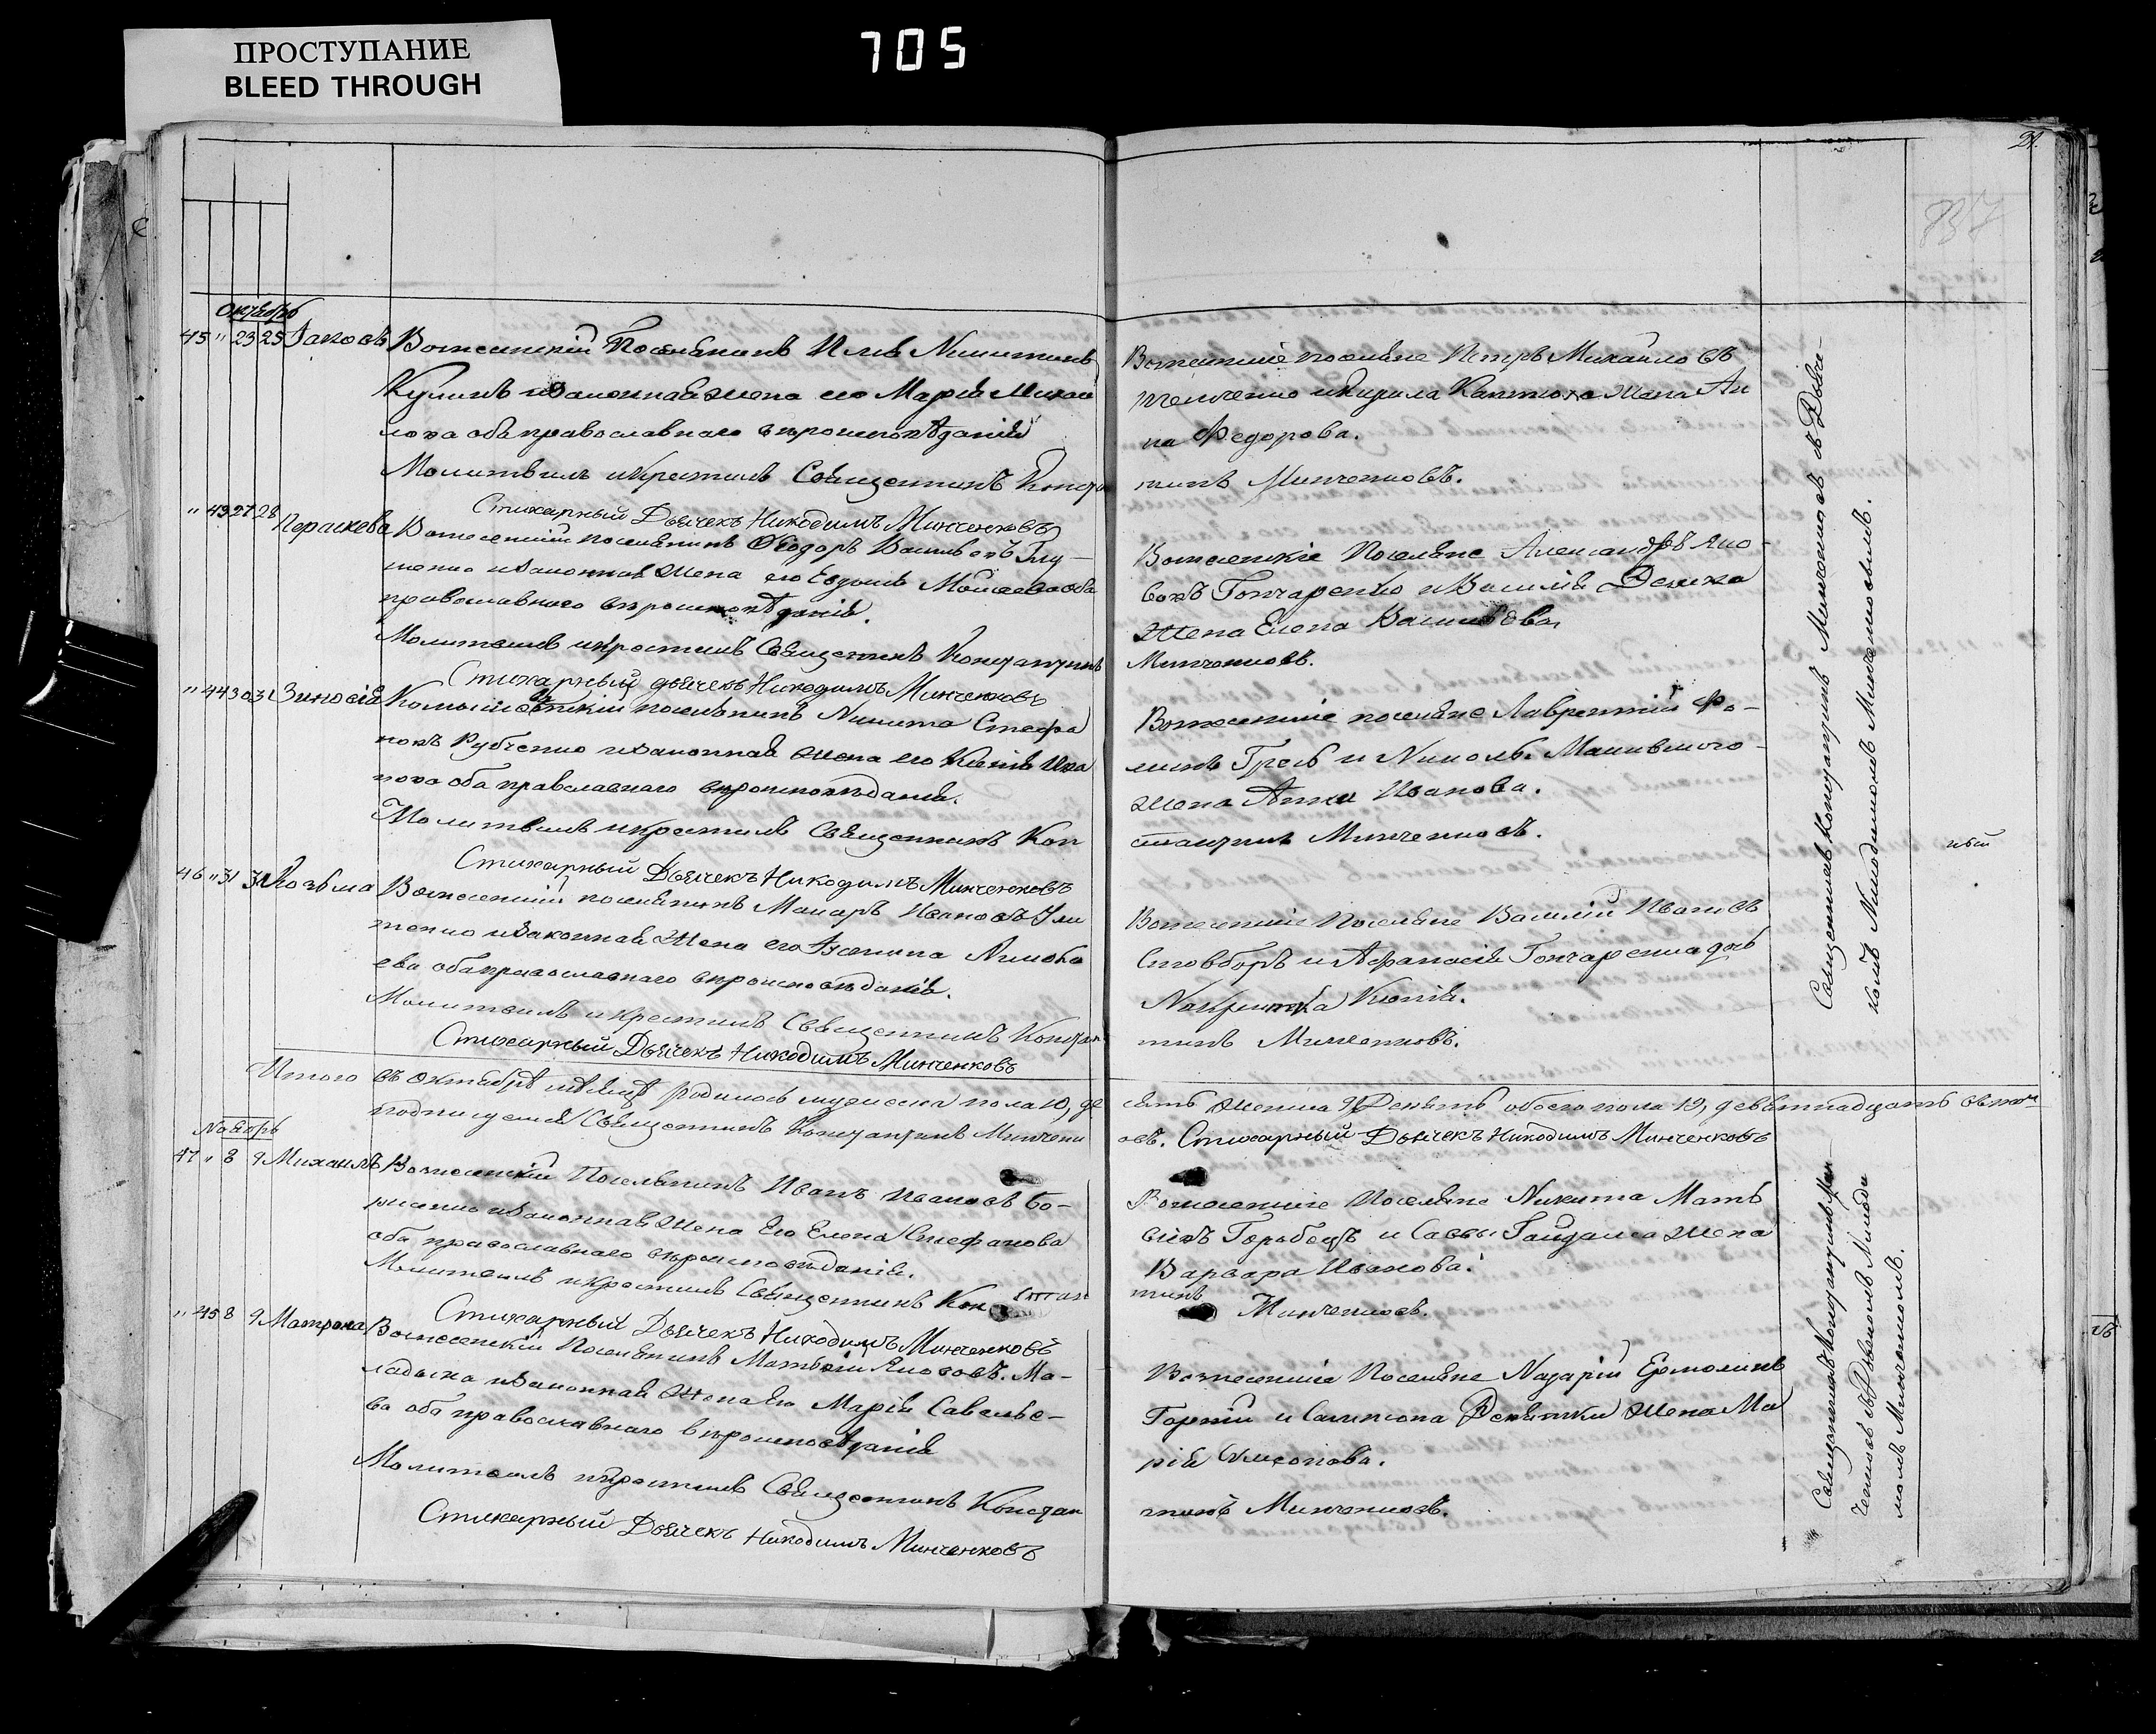 ПРОСТУПАНИЕ
BLEED THROUGH
705
21.
737
Октябрь
45 " 23 25 Іаковъ Вознесенскій Поселянинъ Илія Никитинъ
Куликъ и законная жена его Марія Михаи
лова оба православнаго вѣроисповѣданія
Молитвилъ и крестилъ Священникъ Констан
Стихарный Дьячекъ Никодимъ Минченковъ
" 43 27 28 Параскева Вознесенскій поселянинъ Ѳеодоръ Васильевъ
и законная жена его Евдокія Моисеева оба
православнаго вѣроисповѣданія.
Молитвилъ и крестилъ Священникъ Константинъ
Стихарный дьячекъ Никодимъ Минченковъ
" 44 30 31 Зиновія поселянинъ Никита Стефа
новъ Рубченко и законная жена его Ксенія Ива
нова оба православнаго вѣроисповѣданія.
Молитвилъ и крестилъ Священникъ Кон
Стихарный Дьячекъ Никодимъ Минченковъ
46 " 31 31 Козьма Вознесенскій поселянинъ Макаръ Ивановъ
и законная жена его
ева оба православнаго вѣроисповѣданія.
Молитвилъ и крестилъ Священникъ Констан
Стихарный Дьячекъ Никодимъ Минченковъ
Итого въ Октябрѣ мѣсяцѣ родилось мужеска пола 10, де
подписуемся Священникъ Константинъ Минченк
Ноябрь
47 " 8 9 Михаилъ Вознесенскій Поселянинъ Иванъ Ивановъ Бо-
и законная жена Его Елена Стефанова
оба православнаго вѣроисповѣданія.
Молитвилъ и крестилъ Священникъ Кон стан
Стихарный Дьячекъ Никодимъ Минченковъ
" 45 8 9 Матрона Вознесенскій Поселянинъ Матвѣй Якововъ. Ма-
ладыка и законная жена его Марія Савелье-
ва оба православнаго вѣроисповѣданія
Молитвилъ и крестилъ Священникъ Констан
Стихарный Дьячекъ Никодимъ Минченковъ
Вознесенскіе поселяне Петръ Михайловъ
и Кирила жена Ан
на Федорова.
тинъ Минченковъ.
Вознесенскіе Поселяне Александръ Яко-
вовъ Гончаренко и Василія
жена Елена Васильева
Минченковъ.
Вознесенскіе поселяне Лаврентій Фо-
минъ и
жена Анна Иванова.
стантинъ Минченковъ.
Вознесенскіе Поселяне Василій Ивановъ
и Афанасія Гончаренка дочь
Ксенія.
тинъ Минченковъ.
сять женска 9, Девять обоего пола 19, девятнадцать
овъ. Стихарный Дьячекъ Никодимъ Минченковъ
Вознесенскіе Поселяне Никита Матѳ
віевъ Горобецъ и Савы жена
Варвара Иванова.
тинъ Минченковъ.
Вознесенскіе Поселяне Назарій Ермолинъ
и Сампсона Девятки жена Ма
рія
тинъ Минченковъ.
Священникъ Константинъ Минченковъ съ Дьяч-
комъ Никодимомъ Минченковымъ.
ный
Священникъ Константинъ Мин-
ченковъ съ Дьячкомъ Никоди
момъ Минченковымъ.